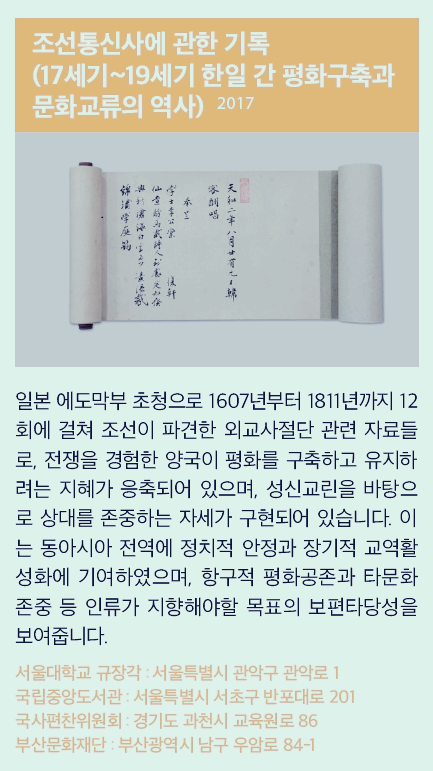 조선통신사에 관한 기록
(17세기~19세기 한일 간 평화구축과
문화교류의 역사) 2017
天和二年八月
일본 에도막부 초청으로 1607년부터 1811년까지 12
회에 걸쳐 조선이 파견한 외교사절단 관련 자료들
로, 전쟁을 경험한 양국이 평화를 구축하고 유지하
려는 지혜가 응축되어 있으며, 성신교린을 바탕으
로 상대를 존중하는 자세가 구현되어 있습니다. 이
는 동아시아 전역에 정치적 안정과 장기적 교역활
성화에 기여하였으며, 항구적 평화공존과 타문화
존중 등 인류가 지향해야할 목표의 보편타당성을
보여줍니다.
서울대학교 규장각 : 서울특별시 관악구 관악로 1
국립중앙도서관 : 서울특별시 서초구 반포대로 201
국사편찬위원회 : 경기도 과천시 교육원로 86
부산문화재단 : 부산광역시 남구 우암로 84-1